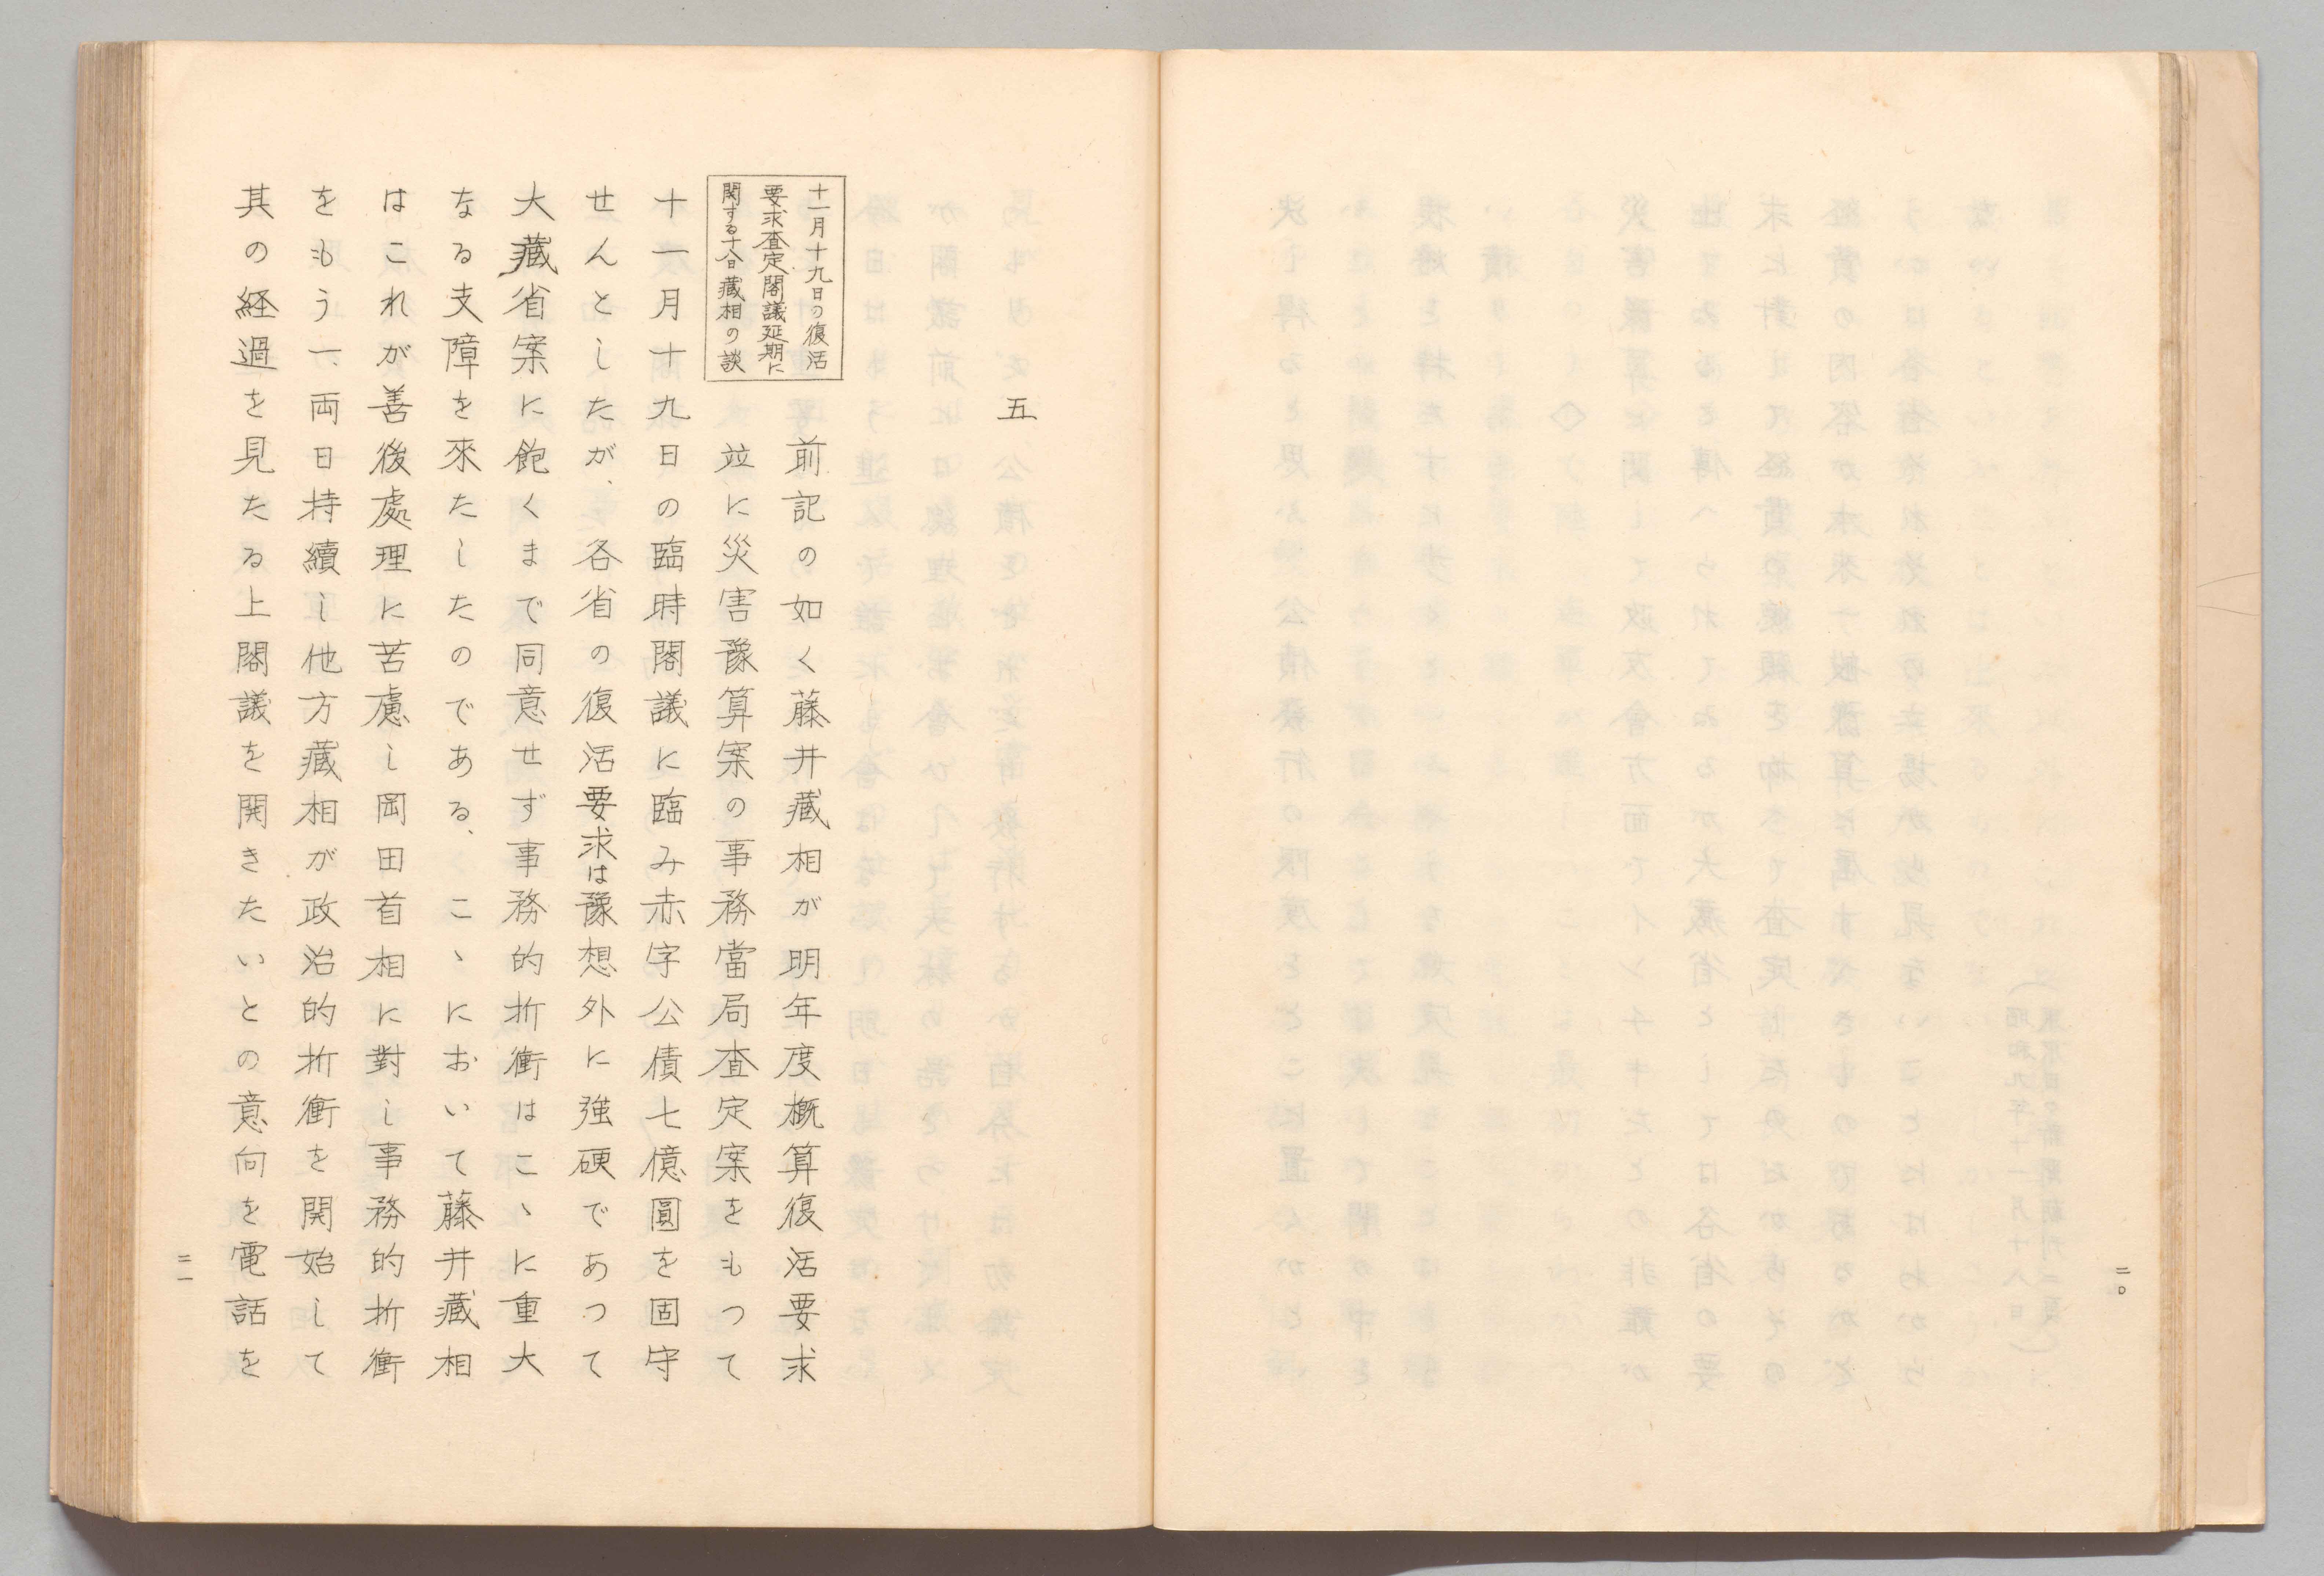 二〇
五
十一月十九日の復活
要求査定閣議延期に
関する十八日藏相の談
前記の如く藤井藏相が明年度概算復活要求
並に災害豫算案の事務當局査定案をもつて
十一月十九日の臨時閣議に臨み赤字公債七億圓を固守
せんとしたが、各省の復活要求は豫想外に強硬であつて
大藏省案に飽くまで同意せず事務的折衝はこゝに重大
なる支障を來たしたのである、こゝにおいて藤井藏相
はこれが善後處理に苦慮し岡田首相に對し事務的折衝
をもう一、両日持續し他方藏相が政治的折衝を開始して
其の経過を見たる上閣議を開きたいとの意向を電話を
二一